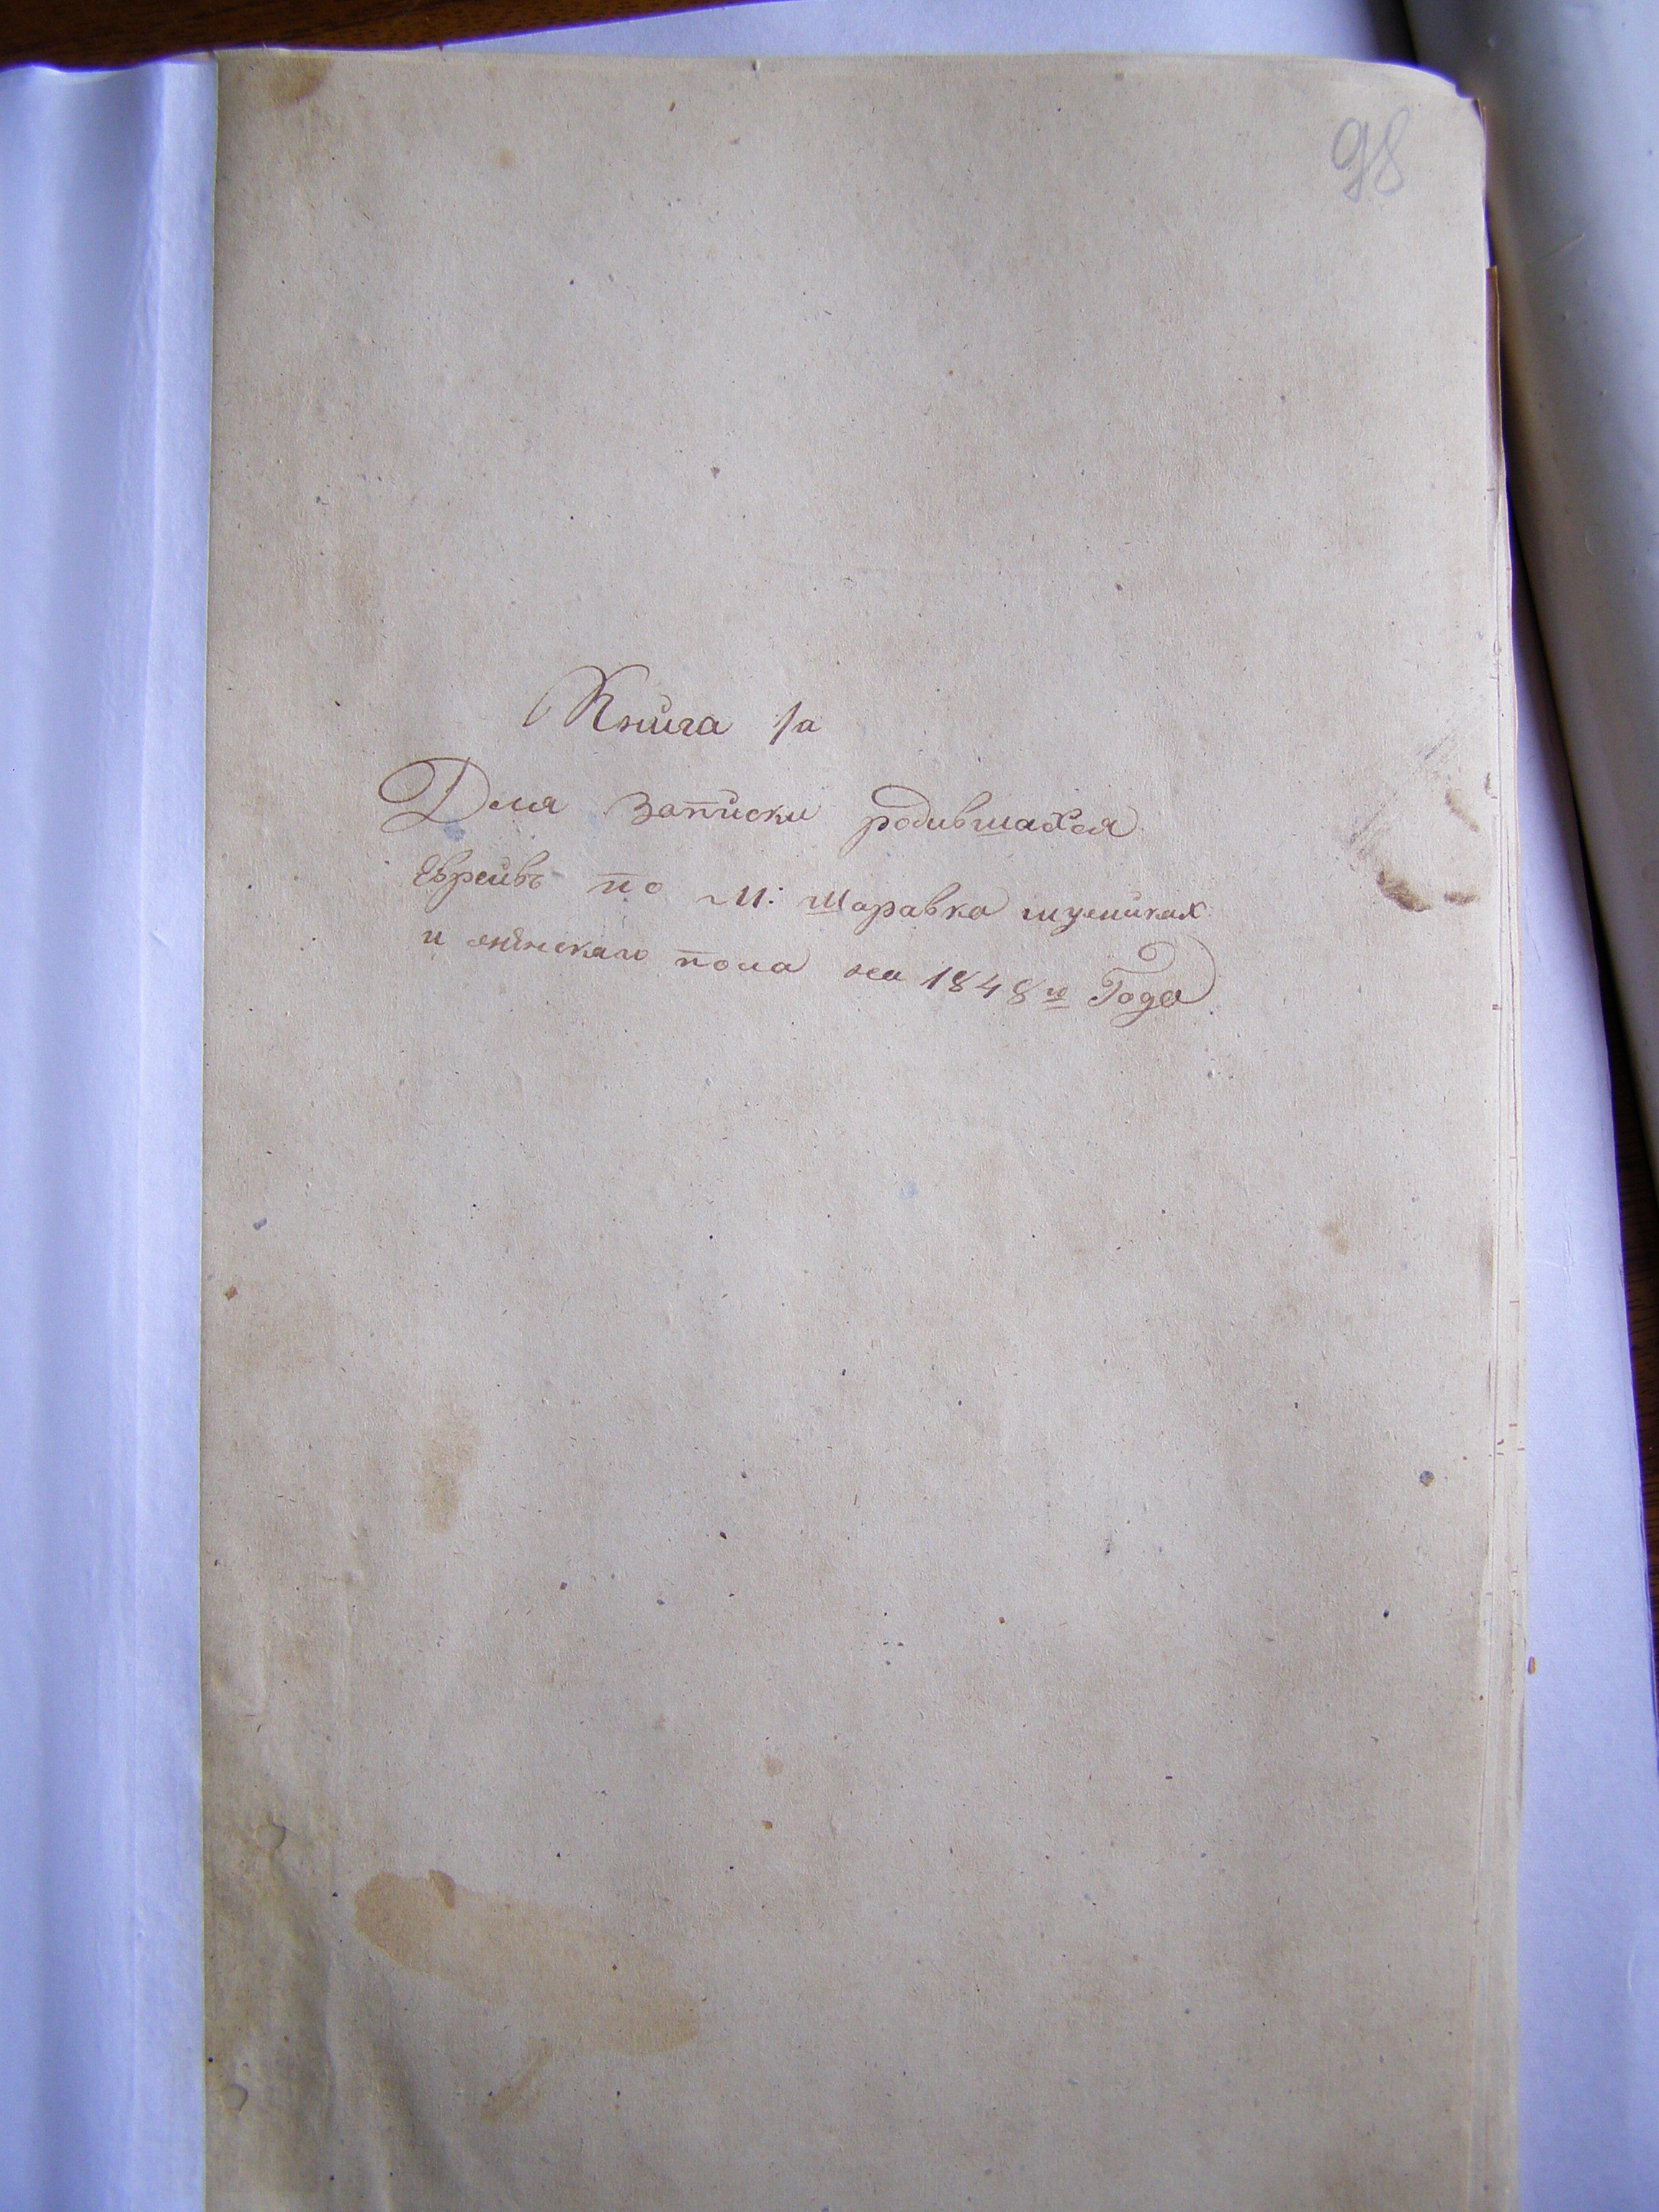 98
Книга 1а
Для записки родившахся
Евреивъ по М: Шаравка
и женскаго пола на 1848го Года